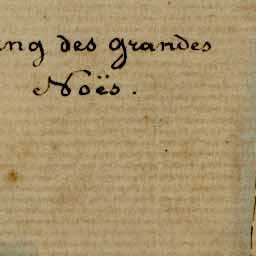 ng des grandes
Noës.